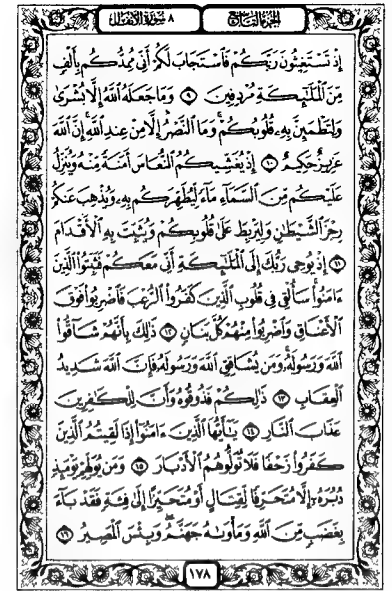 الجزء التاسع
٨ سورة الأنفال
إِذْ تَسْتَغِيثُونَ رَبَّكُمْ فَاسْتَجَابَ لَكُمْ أَنِّي مُمِدُّكُم بِأَلْفٍ
مِّنَ الْمَلَائِكَةِ مُرْدِفِينَ ۝٩ وَمَا جَعَلَهُ اللَّهُ إِلَّا بُشْرَىٰ
وَلِتَطْمَئِنَّ بِهِ قُلُوبُكُمْ ۚ وَمَا النَّصْرُ إِلَّا مِنْ عِندِ اللَّهِ ۚ إِنَّ اللَّهَ
عَزِيزٌ حَكِيمٌ ۝١٠ إِذْ يُغَشِّيكُمُ النُّعَاسَ أَمَنَةً مِّنْهُ وَيُنَزِّلُ
عَلَيْكُم مِّنَ السَّمَاءِ مَاءً لِّيُطَهِّرَكُم بِهِ وَيُذْهِبَ عَنكُمْ
رِجْزَ الشَّيْطَانِ وَلِيَرْبِطَ عَلَىٰ قُلُوبِكُمْ وَيُثَبِّتَ بِهِ الْأَقْدَامَ
۝١١ إِذْ يُوحِي رَبُّكَ إِلَى الْمَلَائِكَةِ أَنِّي مَعَكُمْ فَثَبِّتُوا الَّذِينَ
ءَامَنُوا ۚ سَأُلْقِي فِي قُلُوبِ الَّذِينَ كَفَرُوا الرُّعْبَ فَاضْرِبُوا فَوْقَ
الْأَعْنَاقِ وَاضْرِبُوا مِنْهُمْ كُلَّ بَنَانٍ ۝١٢ ذَٰلِكَ بِأَنَّهُمْ شَاقُّوا
اللَّهَ وَرَسُولَهُ ۚ وَمَن يُشَاقِقِ اللَّهَ وَرَسُولَهُ فَإِنَّ اللَّهَ شَدِيدُ
الْعِقَابِ ۝١٣ ذَٰلِكُمْ فَذُوقُوهُ وَأَنَّ لِلْكَافِرِينَ
عَذَابَ النَّارِ ۝١٤ يَاأَيُّهَا الَّذِينَ ءَامَنُوا إِذَا لَقِيتُمُ الَّذِينَ
كَفَرُوا زَحْفًا فَلَا تُوَلُّوهُمُ الْأَدْبَارَ ۝١٥ وَمَن يُوَلِّهِمْ يَوْمَئِذٍ
دُبُرَهُ إِلَّا مُتَحَرِّفًا لِّقِتَالٍ أَوْ مُتَحَيِّزًا إِلَىٰ فِئَةٍ فَقَدْ بَاءَ
بِغَضَبٍ مِّنَ اللَّهِ وَمَأْوَاهُ جَهَنَّمُ ۖ وَبِئْسَ الْمَصِيرُ ۝١٦
١٧٨